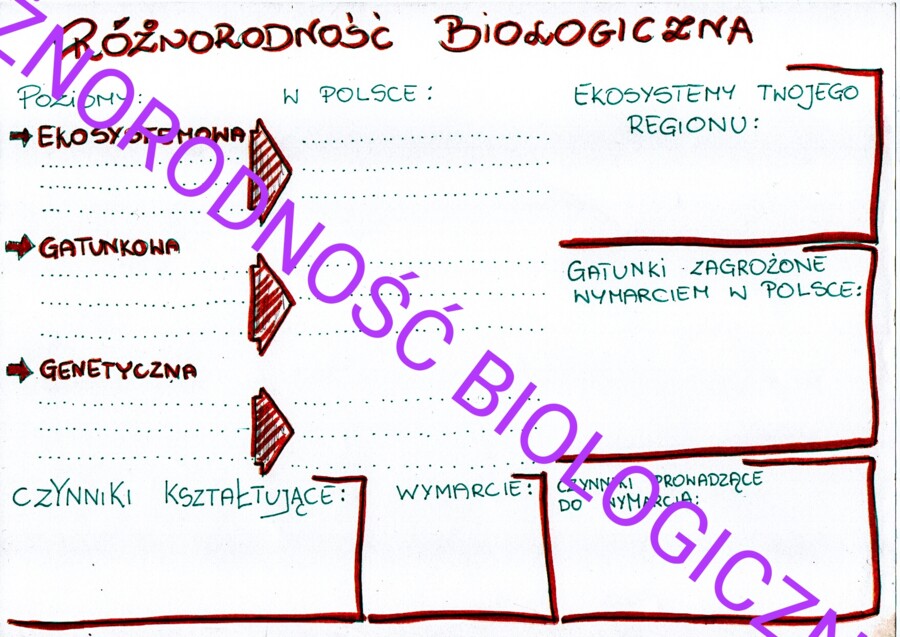 RÓŻNORODNOŚĆ BIOLOGICZNA
POZIOMY:
W POLSCE:
→ EKOSYSTEMOWA
→ GATUNKOWA
→ GENETYCZNA
EKOSYSTEMY TWOJEGO
REGIONU:
GATUNKI ZAGROŻONE
WYMARCIEM W POLSCE:
CZYNNIKI KSZTAŁTUJĄCE:
WYMARCIE:
CZYNNIKI PROWADZĄCE
DO WYMARCIA:
ŻNORODNOŚĆ BIOLOGICZN